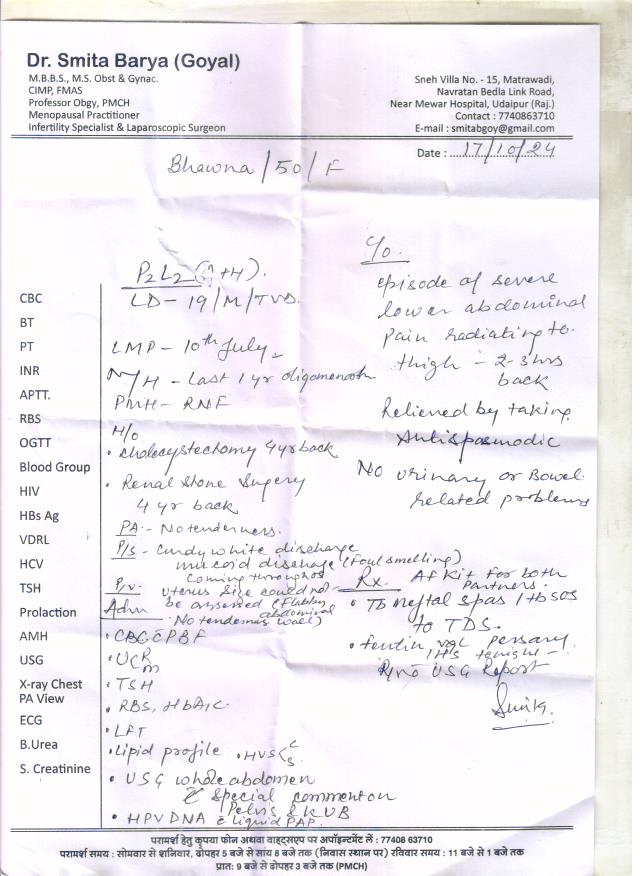 Dr. Smita Barya (Goyal)
M.B.B.S., M.S. Obst & Gynac.
CIMP, FMAS
Professor Obgy, PMCH
Menopausal Practitioner
Infertility Specialist & Laparoscopic Surgeon
Sneh Villa No. - 15, Matrawadi,
Navratan Bedla Link Road,
Near Mewar Hospital, Udaipur (Raj.)
Contact : 7740863710
E-mail : smitabgoy@gmail.com
Date : 17/10/24
Bhawna / 50 / F
CBC
BT
PT
INR
APTT.
RBS
OGTT
Blood Group
HIV
HBs Ag
VDRL
HCV
TSH
Prolaction
AMH
USG
X-ray Chest
PA View
ECG
B.Urea
S. Creatinine
P2L2 ( +H).
LD - 19/M/TVD.
LMP - 10th July
M/H - Last 1 yr oligomenorrh
PMH - RNF
H/o
• Cholecystectomy 4yr back
• Renal Stone Surgery
4 yr back
PA - No tenderness.
P/s - Curdy white discharge
mucoid discharge (foul smelling)
coming through os
P/v. uterus size could not
be assessed (flabby
abdominal
No tenderness wall)
Adv
• CBC c̄ PBF
• UCR
m
• TSH
• RBS, HbA1C.
• LFT
• Lipid profile • HVS < C S
• USG whole abdomen
c̄ special comment on
Pelvis & KUB
• HPV DNA c̄ liquid PAP.
c/o.
episode of severe
lower abdominal
Pain radiating to
thigh - 2-3 hrs
back
Relieved by taking
Antispasmodic
No urinary or Bowel
related problems
Rx. AF Kit for both
Partners.
• Tb Meftal spas 1 tb SOS
to TDS.
• fentin vgl pessary
1 HS tonight -
R/v c̄ USG Report
Smita
परामर्श हेतु कृपया फोन अथवा वाट्सएप पर अपॉइन्टमेंट लें : 77408 63710
परामर्श समय : सोमवार से शनिवार, दोपहर 5 बजे से सांय 8 बजे तक (निवास स्थान पर) रविवार समय : 11 बजे से 1 बजे तक
प्रातः 9 बजे से दोपहर 3 बजे तक (PMCH)